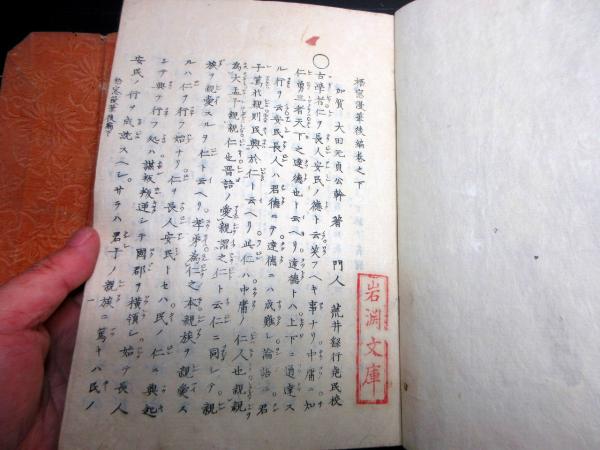 梧窓漫筆後編巻之下
加賀 大田元貞公幹 著 門人 荒井 行 民校
○古學者仁ヲ長人安民ノ德ト云笑フヘキ事ナリ中庸ニ知
仁勇三者天下之達德也ト云ヘリ達德トハ上下ニ通達ス
ル行ヲ云安民長人ハ君德ニテ達德ニハ成難シ論語ニ君
子篤於親則民興於仁ト云ヘリ此仁ハ中庸ノ仁人也親親
為大孟子親親仁也晋語ノ愛親謂之仁ト云仁ニ同シテ親
族ヲ親愛スルヲ仁ト云ヘリ孝弟為仁之本親族ヲ親愛ス
ルハ仁ヲ行フ始ナリ仁ヲ長人安民トセハ民ノ仁ニ興起
シテ興ヲ行フ処ハ謀叛叛逆シテ國郡ヲ横領シ始テ長人
安民ノ行ヲ成就スヘシサラハ君子ノ親族ニ篤キハ民ノ
岩淵文庫
一